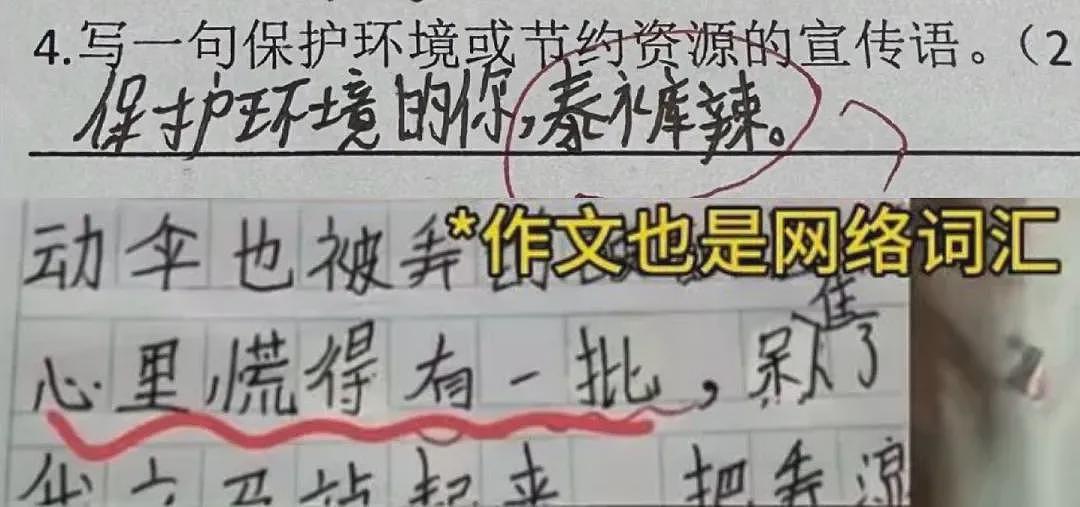 4.写一句保护环境或节约资源的宣传语。（2
保护环境的你,泰裤辣。
*作文也是网络词汇
动伞也被弄
焦
心里慌得有一批，呆了
起来 把弄凉